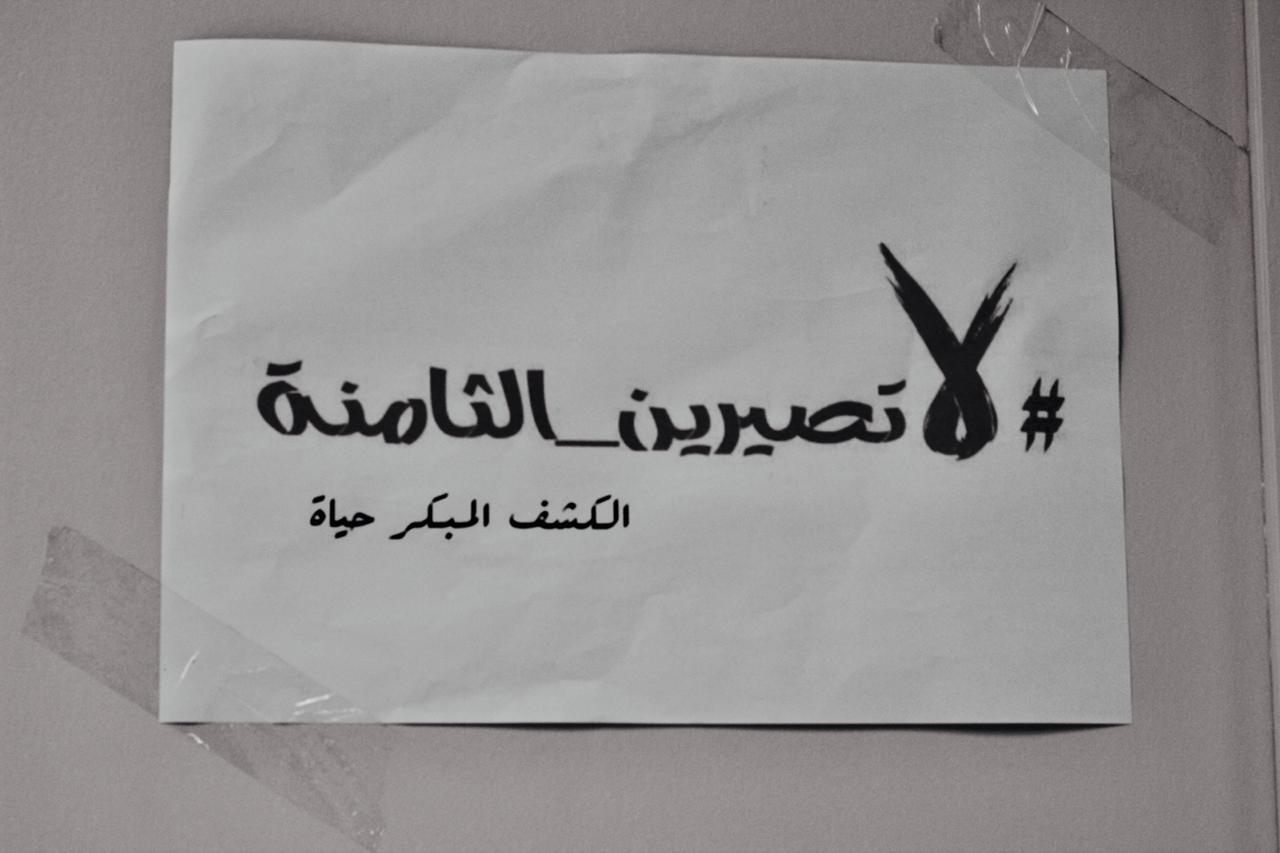 #لا تصيرين_الثامنة
الكشف المبكر حياة